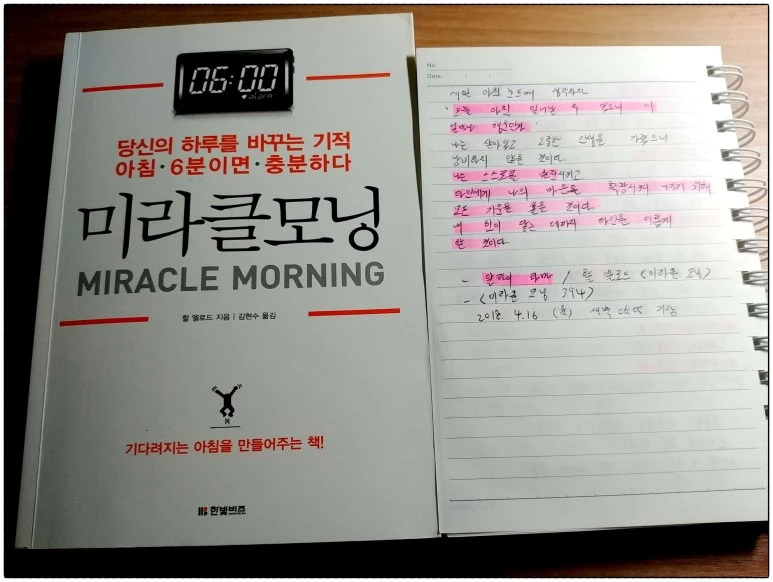 06:00
alarm
당신의 하루를 바꾸는 기적
아침·6분이면·충분하다
미라클모닝
MIRACLE MORNING
할 엘로드 지음 | 김현수 옮김
기다려지는 아침을 만들어주는 책!
한빛비즈
No.
Date. / /
매일 아침 눈뜨며 생각하자
"오늘 아침 일어날 수 있으니 이
얼마나 행운인가"
나는 살아있고 소중한 인생을 가졌으니
낭비하지 않을 것이다.
나는 스스로를 발전시키고
타인에게 나의 마음을 확장시켜 나가기 위해
모든 기운을 쏟을 것이다.
내 힘이 닿는 데까지 타인을 이롭게
할 것이다.
- 달라이 라마 / 할 엘로드 <미라클 모닝>
- <미라클 모닝 394>
2018. 4.16 (월) 새벽 06:05 기상